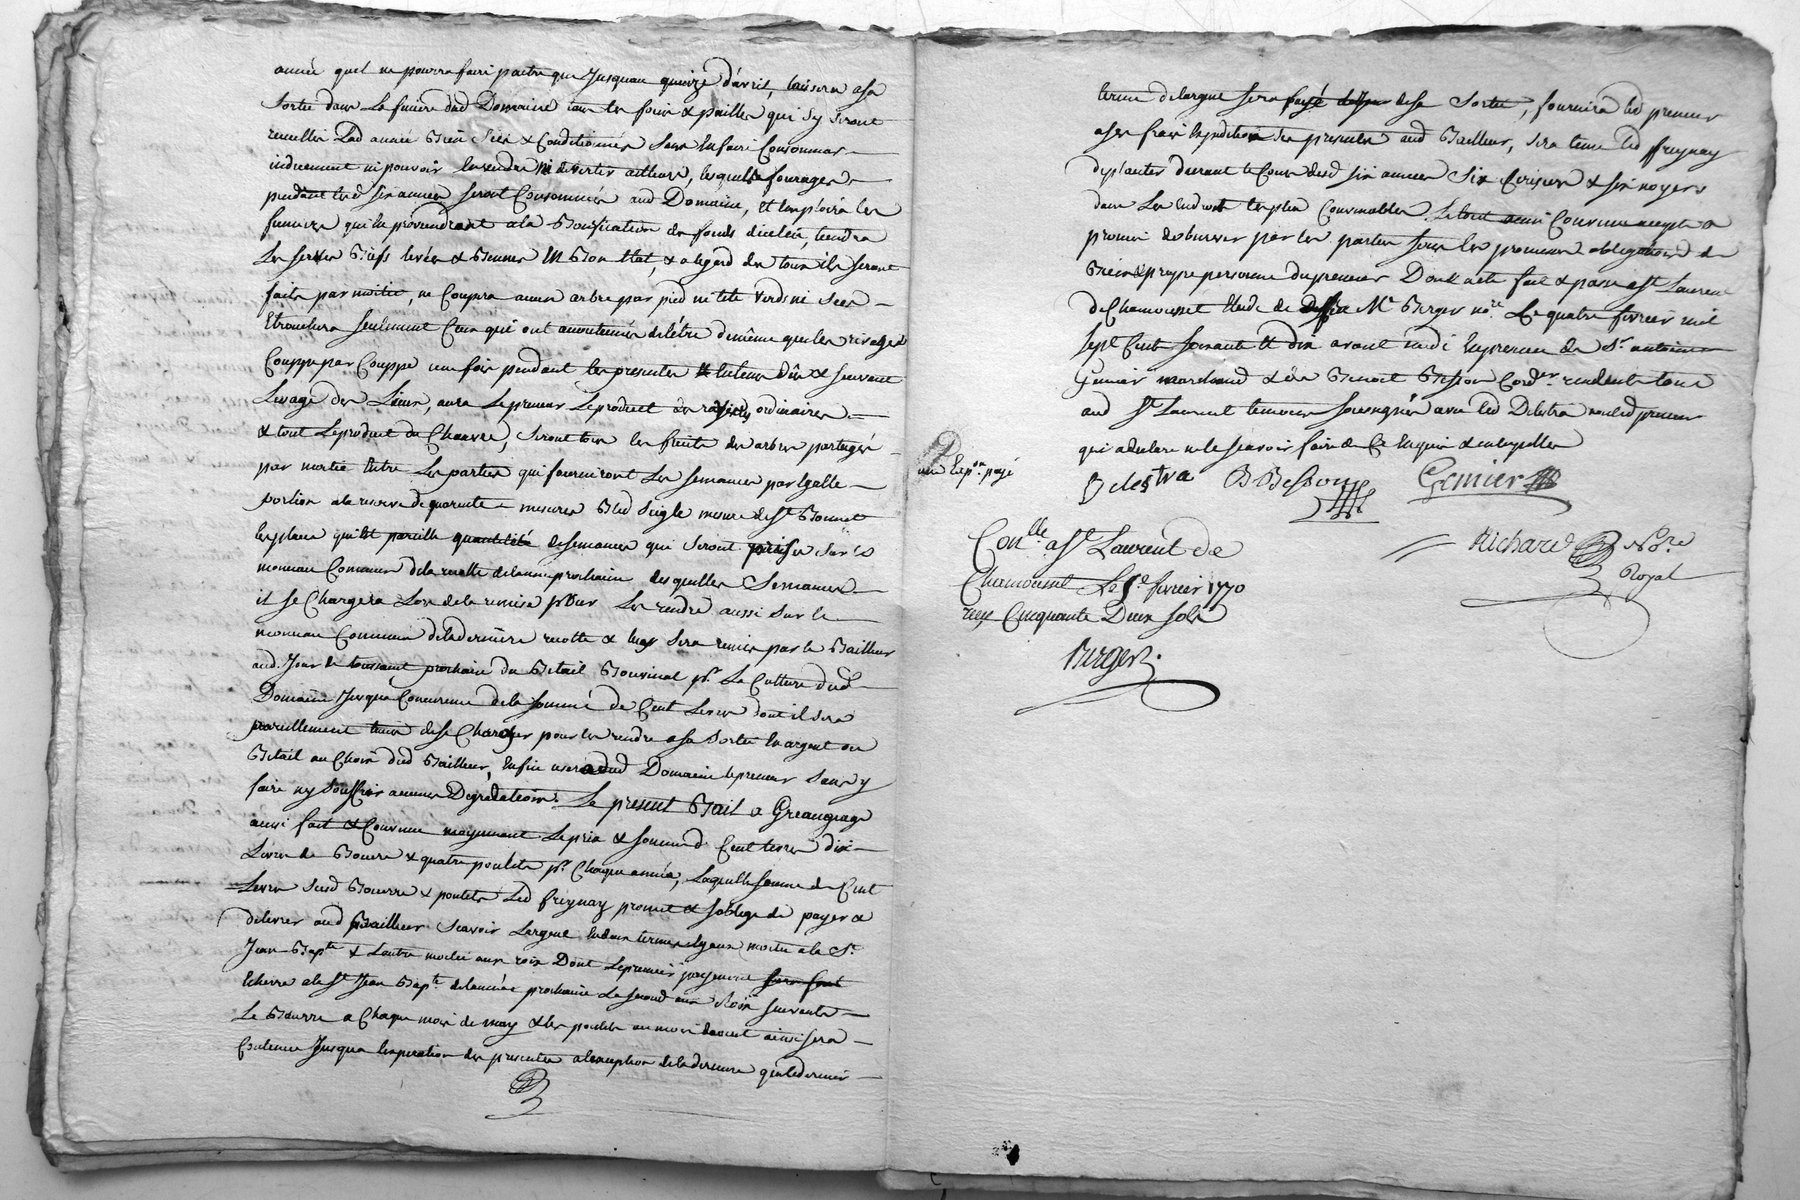 année quel ne pourra faire paitre que Jusquau quinze d'avril, laissera a sa
Sortie dans La feniere dud Domaine tous les foin & pailles qui sy seront
recuellis Lad année Bien Secs & Conditionnés Sans En faire Consommer
indument ni pouvoir En vendre ni divertir ailleurs, lesquels fourages
pendant lesd six années seront Consommés aud Domaine, Et Employera les
fumiers qui En proviendront a la Bonification des fonds dicelui, tendra
Les serves Biefs levées & En Bon Etat, & a legard des tous ils seront
faits par moitié, ne Coupera aucun arbre par pied ni tete verd ni secs
Etronchera seulement Ceux qui ont accoutumés de l'être de même que les rivages
Couppe par Couppe une fois pendant les presentes En tems dûs & suivant
Lusage des Lieux, aura Le preneur Le produit des ordinaires
& tout Le produit du Chanvre, Seront tous les fruits des arbres partagés
par moitié Entre Les parties qui fourniront Les semances par Egalle
portion a la reserve de quarante mesures Bled Seigle mesure de St Bonnet
les place quil Et pareille quantitée de semances qui seront prises sur le
monceau Commun de la recolte de l'année prochaine desquelles Semances
il se Chargera Lors de la remise pour Les rendre aussi sur le
monceau Commun de la derniere recolte & luy sera remis par le Bailleur
aud. Jour de toussaint prochaine du Betail Bouvinal pr. La Culture dud
Domaine Jusqua Concurrence de la somme de Cent Livres dont il sera
pareillement tenu de se Charger pour les rendre a sa Sortie En argent ou
Betail au Choix dud Bailleur, Enfin usera dud Domaine le preneur Sans y
faire ny Souffrir aucunes Degradations. Le present Bail a Grangeage
ainsi fait & Convenu moyennant Le prix & somme de Cent livres dix
Livres de Beurre & quatre poulets pr. Chaque année, Laquelle somme de Cent
Livres Susd Beurre & poulets Led freynay promet & soblige de payer &
delivrer aud Bailleur Scavoir Largent En deux termes Egaux moitié a la St.
Jean Bapte & Lautre moitié aux rois Dont Le premier payement
Echerra a la St Jean Bapte de l'année prochaine Le second aux Rois suivants
Le Beurre a Chaque mois de may & les poulets au mois daoust ainsi sera
Continué Jusqua Lexpiration des presentes a l'exception de la derniere que le dernier
terme de largent sera payé de sa Sortie, fournira led preneur
a ses frais Expedition des presentes aud Bailleur, Sera tenu led freynay
de planter durant le Cours desd six années Six Cerisiers & six noyers
dans Les Endroits les plus Convenables. Le tout ainsi Convenu accepté &
promis dobserver par les parties sous les promesses obligations de
Biens & propre personne du preneur Dont acte fait & passé a St Laurent
de Chamousset Etude de Me Berger nore. Le quatre fevrier mil
sept Cent soixante Et dix avant midi En presence de Sr antoine
Genier marchand & de Benoit Besson Corder. residents tous
aud St Laurent temoins soussignés avec led Delestra non led preneur
qui a declaré ne le scavoir faire de Ce Enquis & interpellé
une Expon. payé
Delestra B Besson Genier
Richard Nore
Royal
Conlle a St Laurent de
Chamousset Le fevrier 1770
reçu Cinquante Deux sols
Berger